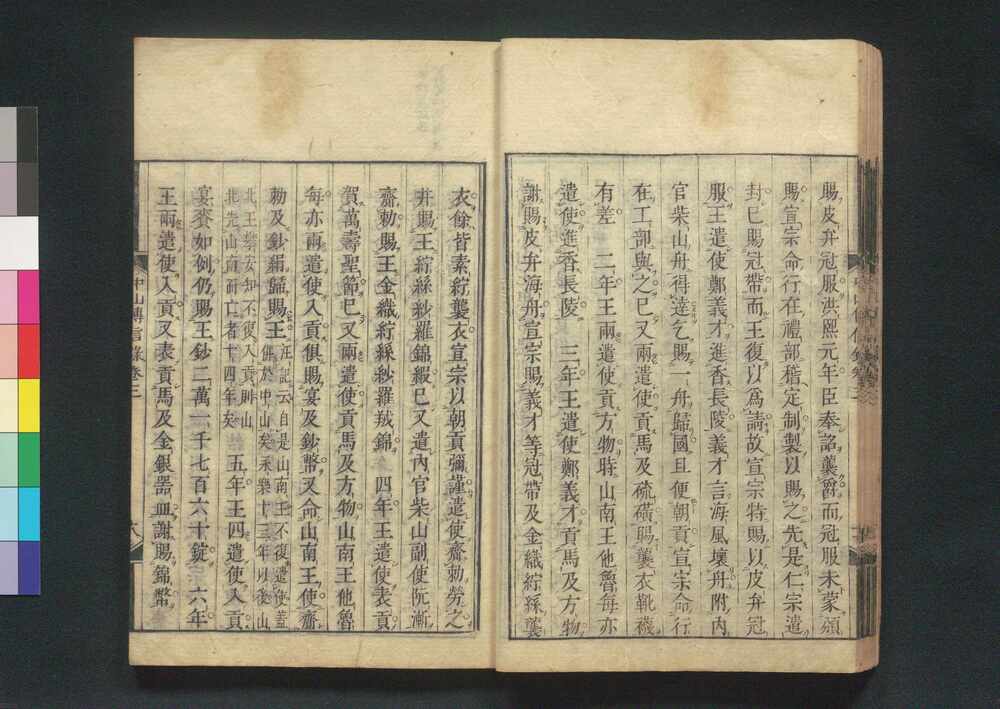 賜皮弁冠服洪熙元年臣奉詔襲爵而冠服未蒙頒
賜宣宗命行在禮部稽定制製以賜之先是仁宗遣
封巳賜冠帶而王復以爲請故宣宗特賜以皮弁冠
服王遣使鄭義才進香長陵義才言海風壞舟附內
官柴山舟得達乞賜一舟歸國且便朝貢宣宗命行
在工部與之巳又兩遣使貢馬及硫磺賜襲衣靴襪
有差 二年王兩遣使貢方物時山南王他魯每亦
遣使進香長陵 三年王遣使鄭義才貢馬及方物
謝賜皮弁海舟宣宗賜義才等冠帶及金織紵絲襲
衣餘皆素紵襲衣宣宗以朝貢彌謹遣使齋勅勞之
并賜王紵絲紗羅錦緞巳又遣內官柴山副使阮漸
齋勅賜王金織紵絲紗羅絨錦 四年王遣使表貢
賀萬壽聖節巳又兩遣使貢馬及方物山南王他魯
每亦兩遣使入貢俱賜宴及鈔幣又命山南王使齋
勅及鈔絹歸賜王汪記云自是山南王不復遣使蓋
併於中山矣永樂十三年以後山
北王攀安知不復入貢則山
北先山南而亡者十四年矣 五年王四遣使入貢
宴賚如例仍賜王鈔二萬一千七百六十錠 六年
王兩遣使入貢又表貢馬及金銀器皿謝賜錦幣
中山傳信錄卷三